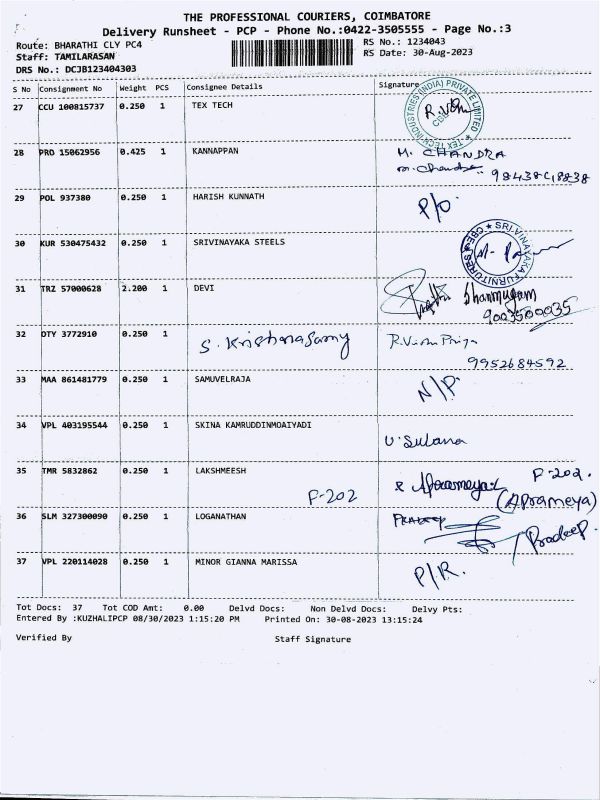 THE PROFESSIONAL COURIERS, COIMBATORE
Delivery Runsheet - PCP - Phone No.:0422-3505555 - Page No.:3
Route: BHARATHI CLY PC4 RS No.: 1234043
Staff: TAMILARASAN RS Date: 30-Aug-2023
DRS No.: DCJB123404303
S No Consignment No Weight PCS Consignee Details Signature
27 CCU 100815737 0.250 1 TEX TECH
TEXTECH INDUSTRIES (INDIA) PRIVATE LIMITED ★
CBE
28 PRO 15062956 0.425 1 KANNAPPAN M. CHANDRA
29 POL 937380 0.250 1 HARISH KUNNATH P/O
30 KUR 530475432 0.250 1 SRIVINAYAKA STEELS
★ SRI VINAYAKA FURNITURES CBE
31 TRZ 57000628 2.200 1 DEVI Shanmugam
9003500035
32 DTY 3772910 0.250 1 S. Krishnasamy R.Vishnu Priya
9952684592
33 MAA 861481779 0.250 1 SAMUVELRAJA N/P.
34 VPL 403195544 0.250 1 SKINA KAMRUDDINMOAIYADI
U. Sulana
35 TMR 5832862 0.250 1 LAKSHMEESH F-202.
F-202 (Aprameya)
36 SLM 327300090 0.250 1 LOGANATHAN PRADEEP
Pradeep.
37 VPL 220114028 0.250 1 MINOR GIANNA MARISSA
P/R.
Tot Docs: 37 Tot COD Amt: 0.00 Delvd Docs: Non Delvd Docs: Delvy Pts:
Entered By :KUZHALIPCP 08/30/2023 1:15:20 PM Printed On: 30-08-2023 13:15:24
Verified By Staff Signature